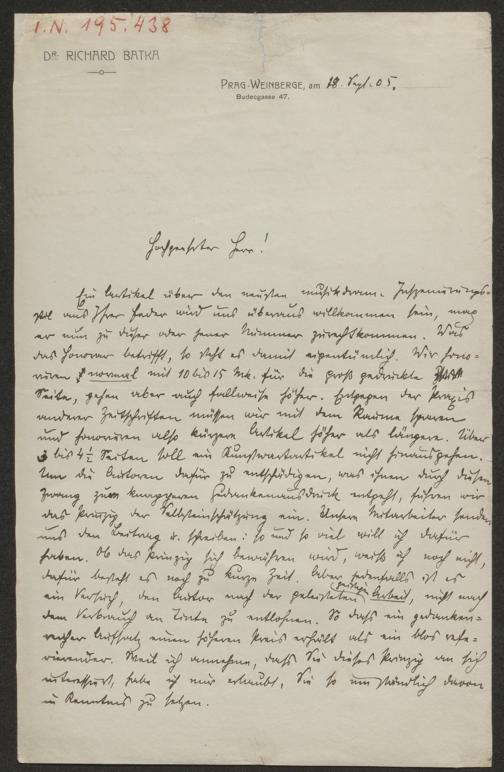 I.N. 195.438
DR. RICHARD BATKA
PRAG-WEINBERGE, am 28. Sept. 05.
Budecgasse 47.
Hochgeehrter Herr!
Ein Artikel über den neusten musikdram. Inszenierungs-
stil aus Ihrer Feder wird uns überaus willkommen sein, mag
er nun zu dieser oder jener Nummer zurechtkommen. Was
das Honorar betrifft, so steht es damit eigentümlich. Wir hono-
rieren normal mit 10 bis 15 Mk. für die groß gedruckte
Seite, gehen aber auch fallweise höher. Entgegen der Praxis
anderer Zeitschriften müssen wir mit dem Raume sparen
und honorieren also kürzere Artikel höher als längere. Über
3 bis 4½ Seiten soll ein Kunstwartartikel nicht hinausgehen.
Um die Autoren dafür zu entschädigen, was ihnen durch diesen
Zwang zum knapperen Gedankenausdruck entgeht, führen wir
das Prinzip der Selbsteinschätzung ein. Unsere Mitarbeiter senden
uns den Beitrag u. schreiben: so und so viel will ich dafür
haben. Ob das Prinzip sich bewähren wird, weiß ich noch nicht,
dafür besteht es noch zu kurze Zeit. Aber jedenfalls ist es
ein Versuch, den Autor nach der geleisteten geistigen Arbeit, nicht nach
dem Verbrauch an Tinte zu entlohnen. So daß ein gedanken-
reicher Aufsatz einen höheren Preis erhält als ein blos refe-
rierender. Weil ich annehme, daß Sie dieses Prinzip an sich
interessiert, habe ich mir erlaubt, Sie so umständlich davon
in Kenntnis zu setzen.